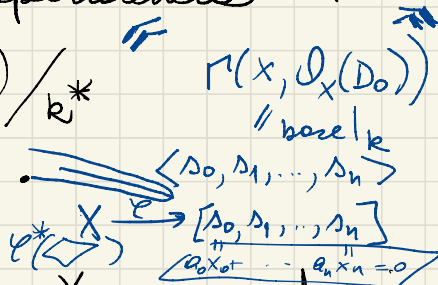 )/k* Γ(X, 𝒪_X(D_0))
// base|_k
<s_0, s_1, ..., s_n>
X —φ→ [s_0, s_1, ..., s_n]
φ*(▱) a_0 x_0 + ... a_n x_n = 0